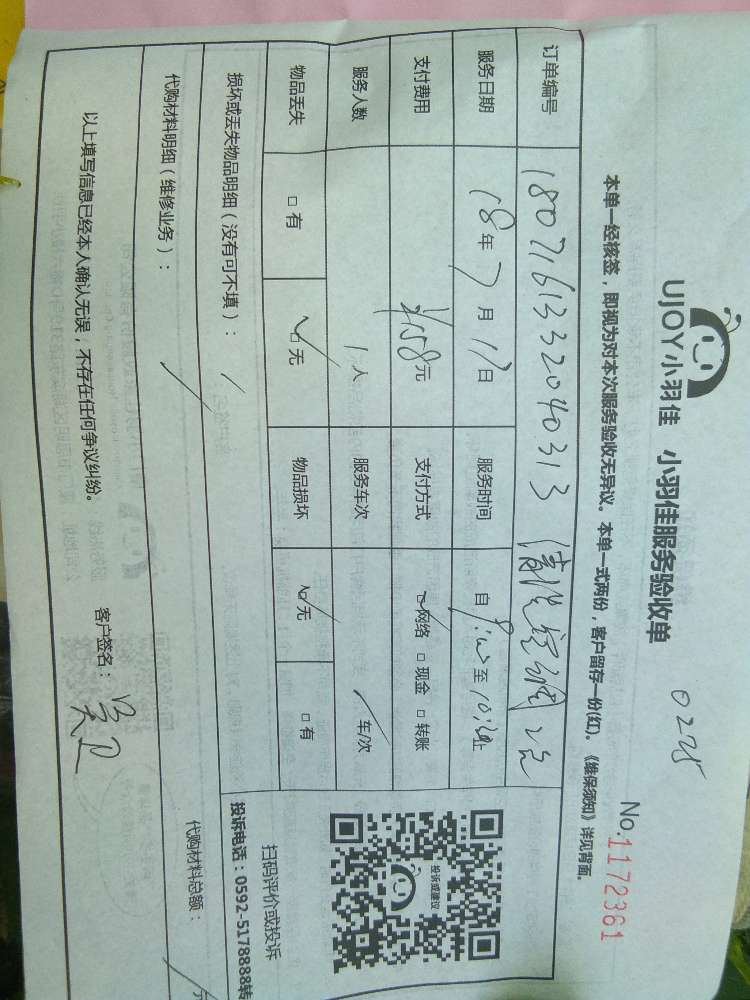 UJOY小羽佳 小羽佳服务验收单
0225
No.1172361
本单一经核签，即视为对本次服务验收无异议。本单一式两份，客户留存一份(红)。《维保须知》详见背面。
订单编号 1807161332040313 清洗空调2台
服务日期 18年7月17日 服务时间 自 至 止
支付费用 ¥158元 支付方式 ☑网络 □现金 □转账
服务人数 1人 服务车次 车/次
物品丢失 □有 ☑无 物品损坏 ☑无 □有
损坏或丢失物品明细（没有可不填）： /
代购材料明细（维修业务）： /
代购材料总额： / 元
投诉或建议
扫码评价或投诉
投诉电话：0592-5178888转
以上填写信息已经本人确认无误，不存在任何争议纠纷。
客户签名：